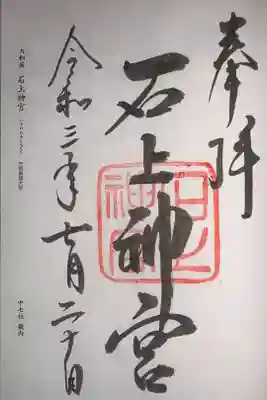 奉拝
石上神宮
令和三年七月二十日
大和國 石上神宮
中七社 畿内